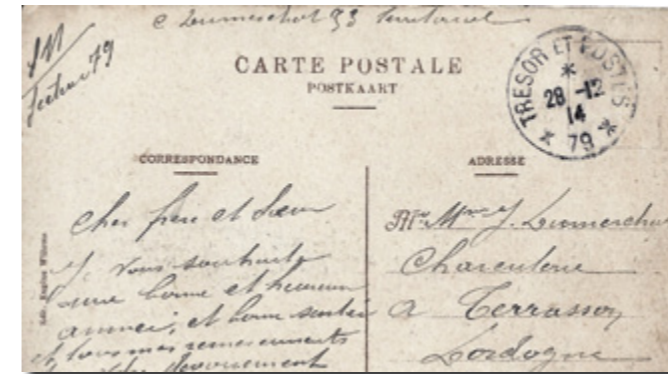 93 Territorial
SM
Secteur 79
CARTE POSTALE
POSTKAART
TRESOR ET POSTES
28 -12
14
* 79 *
CORRESPONDANCE
ADRESSE
Cher frere et Sœur
Je vous souhaite
une bonne et heureuse
année, et bonne santée
et tous mes remerciments
devouement
Mr Mme J. Dumerchat
Charcuterie
a Terrasson
Dordogne